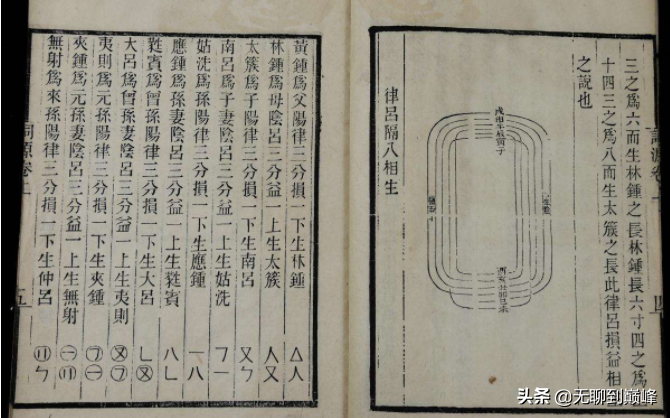 三之爲六而生林鍾之長林鍾長六寸四之爲
十四三之爲八而生太簇之長此律呂損益相
之說也
律呂隔八相生
黃鍾爲父陽律三分損一下生林鍾
林鍾爲母陰呂三分益一上生太簇
太簇爲子陽律三分損一下生南呂
南呂爲子妻陰呂三分益一上生姑洗
姑洗爲孫陽律三分損一下生應鍾
應鍾爲孫妻陰呂三分益一上生蕤賓
蕤賓爲曾孫陽律三分損一下生大呂
大呂爲曾孫妻陰呂三分益一上生夷則
夷則爲元孫陽律三分損一下生夾鍾
夾鍾爲元孫妻陰呂三分益一上生無射
無射爲來孫陽律三分損一下生仲呂
詞源卷上
五
头条 @无聊到巅峰